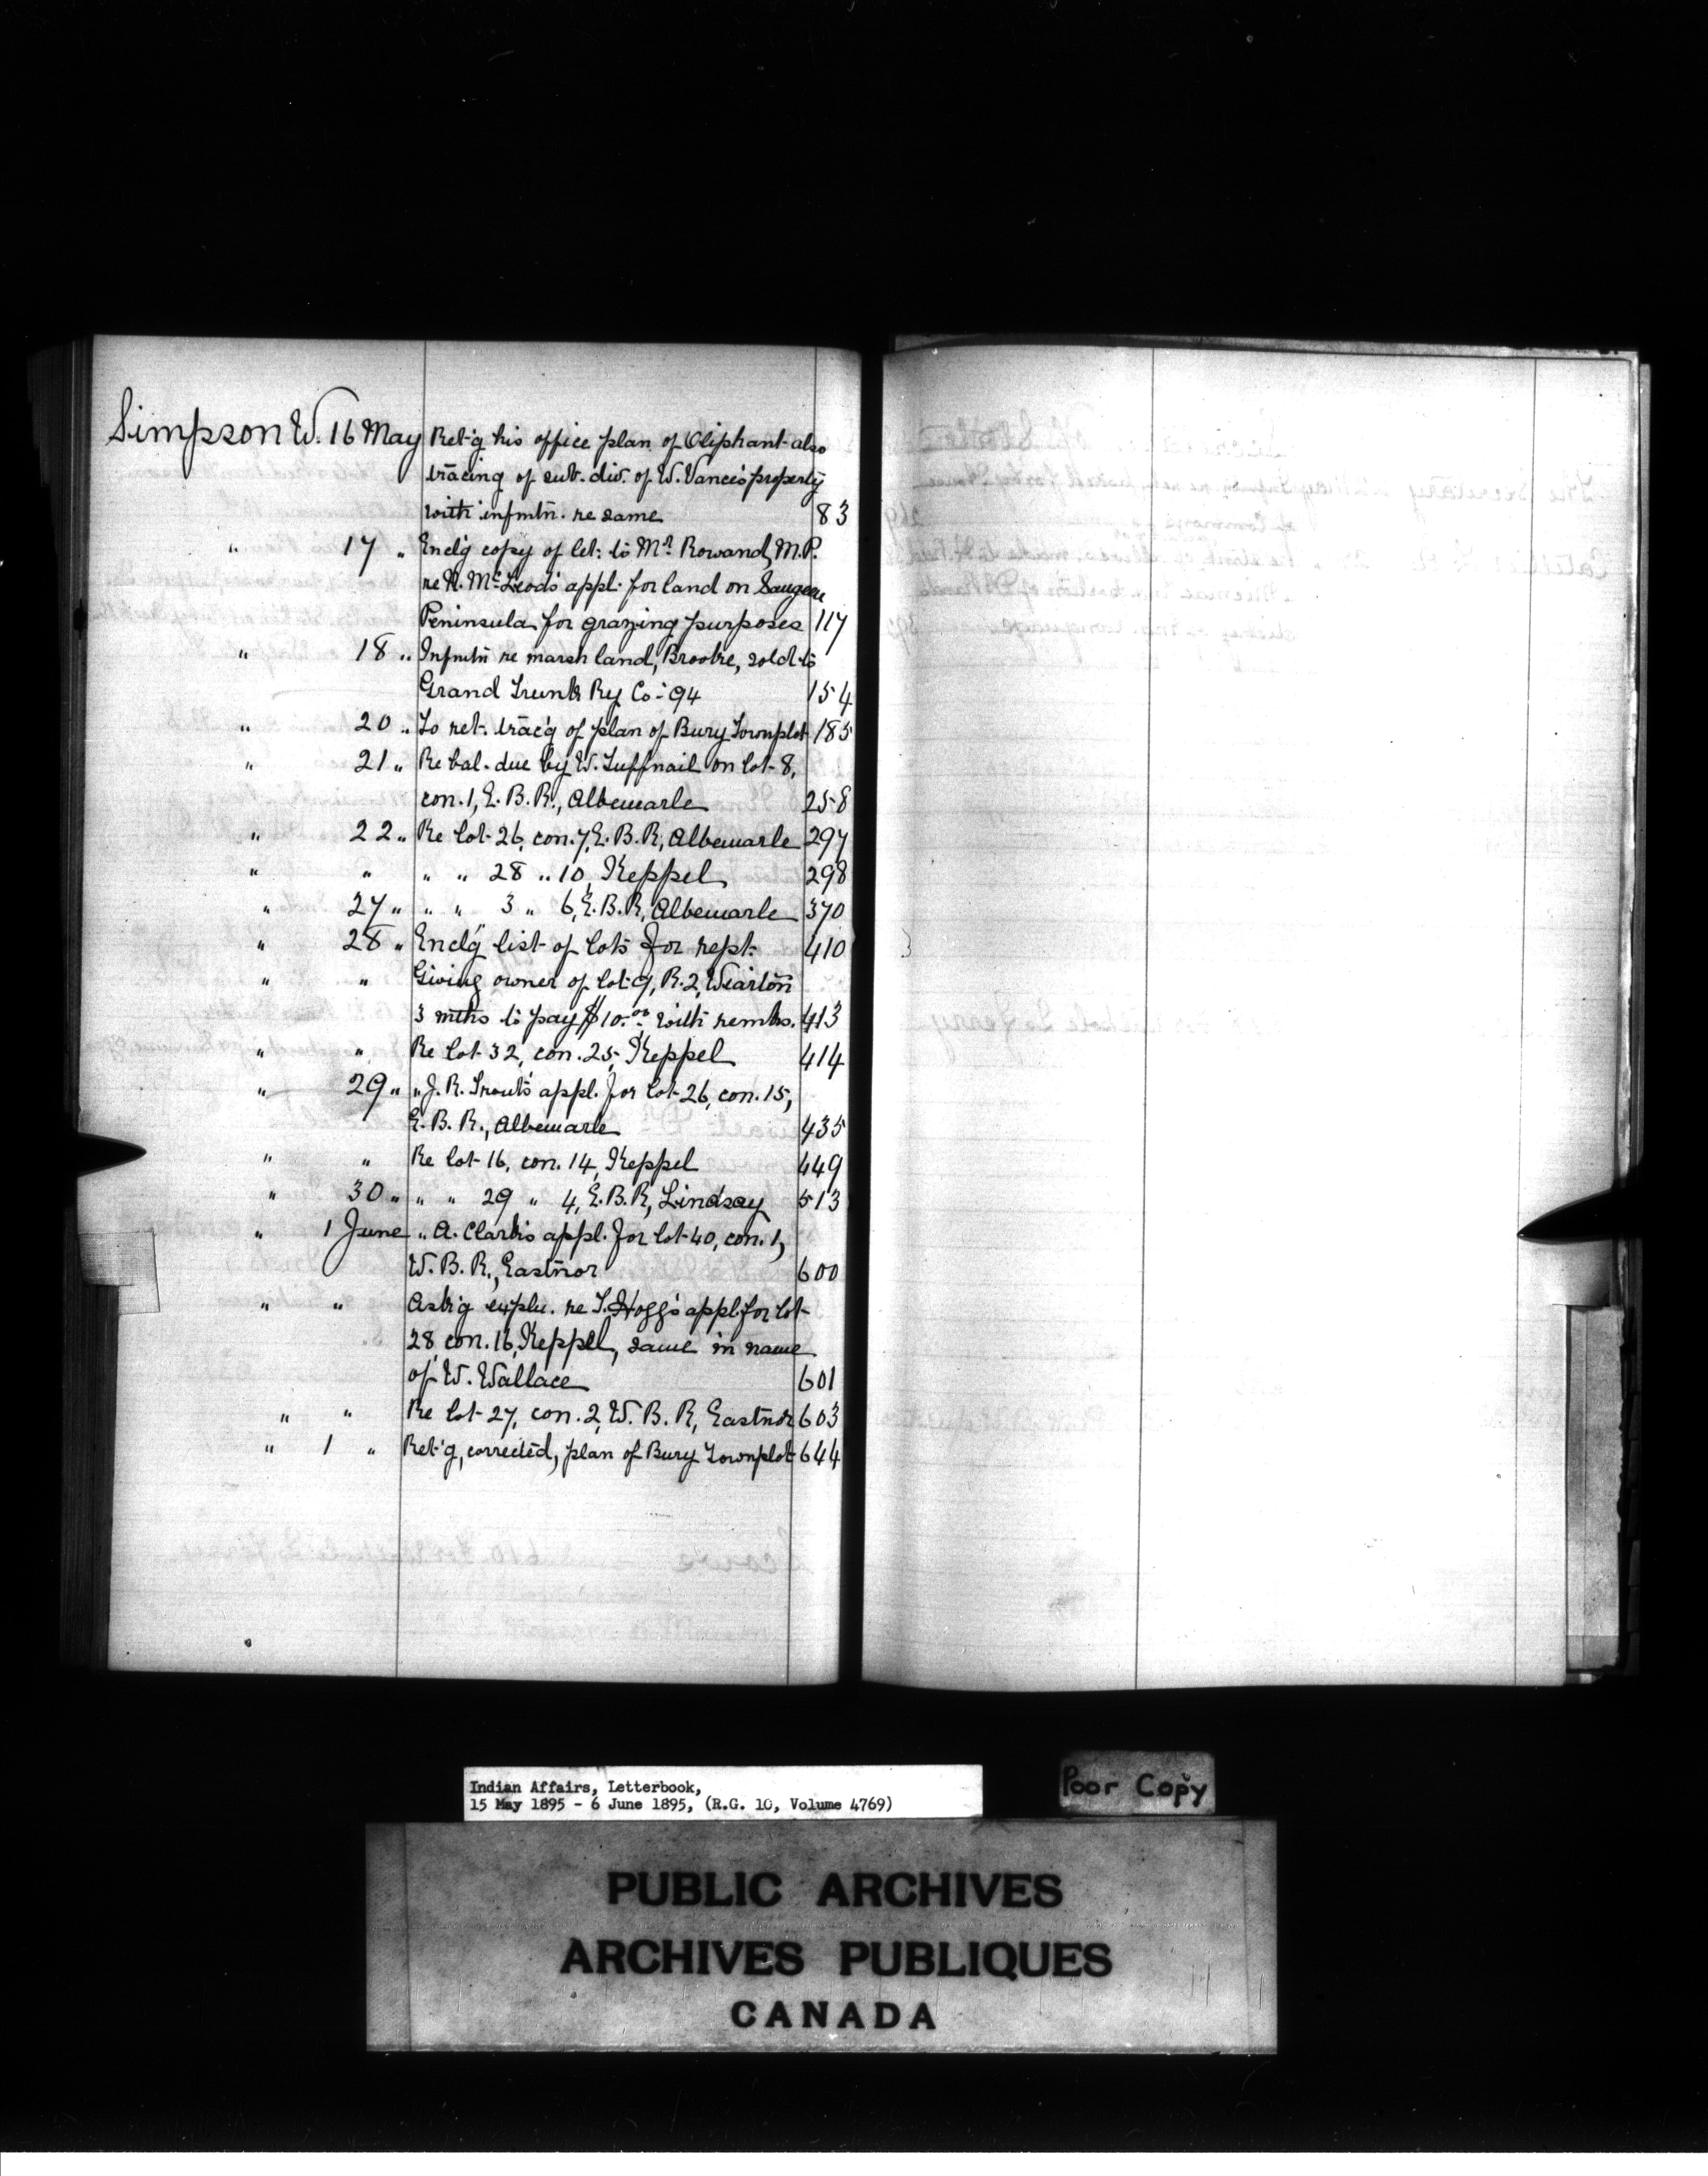 Simpson W. 16 May Ret'g his office plan of Oliphant also
tracing of sub. div. of W. Vance's property
with infmtn. re same 83
" 17 " Encl'g copy of let: to Mr. Rowand, M.P.
re N. McLeod's appl. for land on Saugeen
Peninsula for grazing purposes 117
" 18 " Infmtn re marsh land, Brooke, sold to
Grand Trunk Ry Co: 94 154
" 20 " To ret. trac'g of plan of Bury Townplot 185
" 21 " Re bal. due by W. Tuffnail on lot 8,
con. 1, E. B. R., Albemarle 258
" 22 " Re lot 26, con. 7, E. B. R, Albemarle 297
" " " " 28 " 10 Keppel 298
" 27 " " " 3 " 6, E. B. R, Albemarle 370
" 28 " Encl'g list of lots for rept. 410
" " Giving owner of lot 9, R. 2, Wiarton
3 mths to pay $10.00 with remks. 413
" " Re lot 32, con. 25, Keppel 414
" 29 " " J. R. Trout's appl. for lot 26, con. 15,
E. B. R., Albemarle 435
" " Re lot 16, con. 14, Keppel 449
" 30 " " " 29 " 4, E. B. R, Lindsay 513
" 1 June " A. Clark's appl. for lot 40, con. 1,
W. B. R., Eastnor 600
" " Ask'g expln. re T. Hogg's appl. for lot
28, con. 16, Keppel, same in name
of W. Wallace 601
" " Re lot 27, con. 2, W. B. R, Eastnor 603
" 1 " Ret'g, corrected, plan of Bury Townplot 644
Indian Affairs, Letterbook,
15 May 1895 - 6 June 1895, (R.G. 10, Volume 4769)
Poor Copy
PUBLIC ARCHIVES
ARCHIVES PUBLIQUES
CANADA